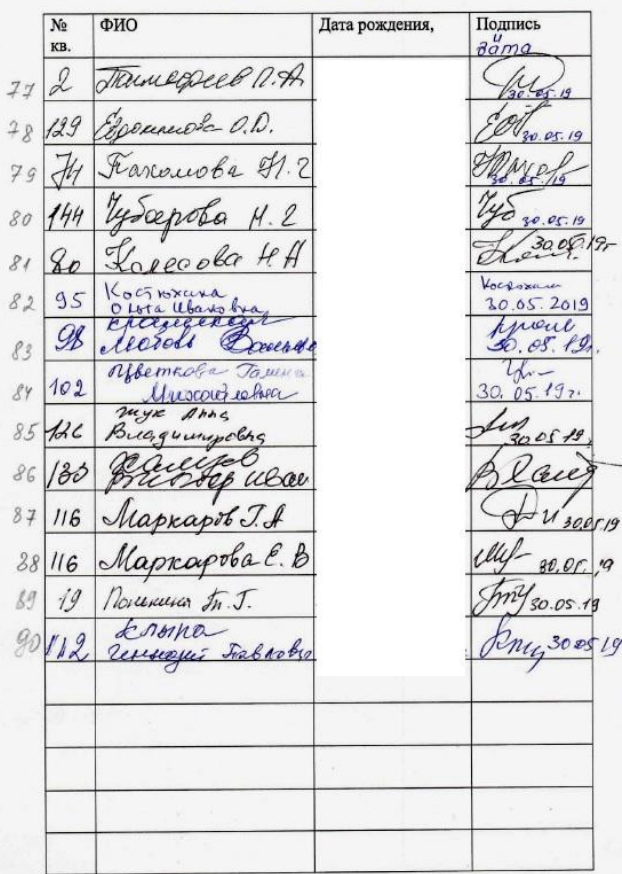 № кв. ФИО Дата рождения, Подпись дата
77 2 Тимофеев П.А 30.05.19
78 129 О.Д. 30.05.19
79 74 Пахомова Н.Г 30.05.19
80 144 Чубарова Н.Г Чуб 30.05.19
81 80 Колесова Н.А 30.05.19г
82 95 Костюхина Ольга Ивановна 30.05.2019
83 98 Любовь 30.05.19г.
84 102 Цветкова Галина Михайловна 30.05.19г.
85 126 Жук Анна Владимировна 30.05.19
86 133 Виктор Иван
87 116 Маркаров Г.А 30.05.19
88 116 Маркарова Е.В 30.05.19
89 19 30.05.19
90 112 Клыпа Геннадий Павлович 30.05.19